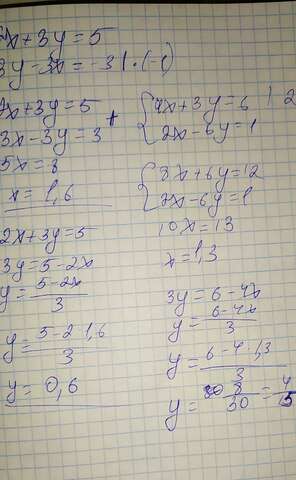 2x+3y=5
3y-3x=-3 | ·(-1)
2x+3y=5
3x-3y=3 +
5x=8
x=1,6
2x+3y=5
3y=5-2x
y=\frac{5-2x}{3}
y=\frac{5-2·1,6}{3}
y=0,6
{4x+3y=6 | 2
{2x-6y=1
{8x+6y=12
{2x-6y=1
10x=13
x=1,3
3y=6-4x
y=\frac{6-4x}{3}
y=\frac{6-4·1,3}{3}
y=\frac{8}{30}=\frac{4}{15}